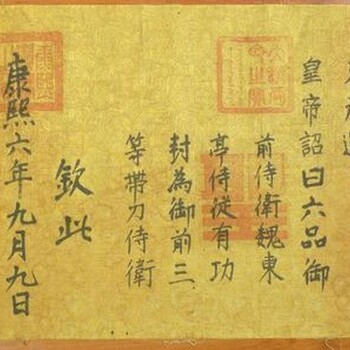 皇帝詔曰六品御
前侍衛魏東
亭侍從有功
封為御前三
等帶刀侍衛
欽此
康熙六年九月九日